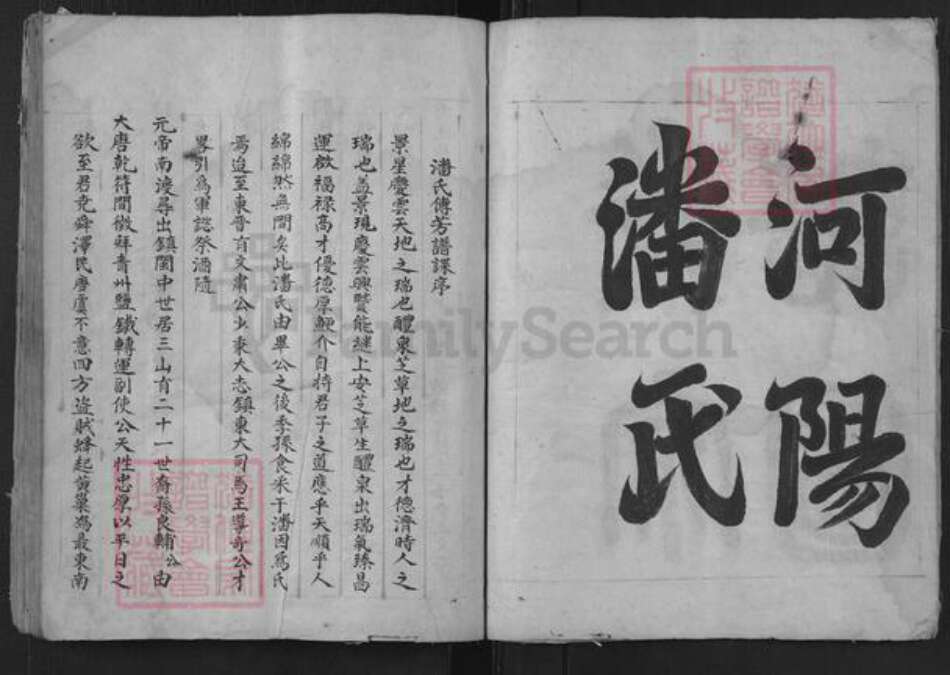 河陽
潘氏
潘氏傳芳譜諜序
景星慶雲天地之瑞也醴泉芝草地之瑞也才德濟時人之
瑞也蓋景現慶雲興賢能継上安芝草生醴泉出瑞氣臻昌
運啟福禄高才優德厚鯁介自持君子之道應乎天順乎人
綿綿然無間矣此潘氏由畢公之後季孫食采于潘因爲氏
焉迨至東晉有文肅公少束大志鎮東大司馬王導奇公才
畧引爲軍諮祭酒隨
元帝南渡尋出鎮閩中世居三山有二十一世裔孫良輔公由
大唐乾符間徵拜青州鹽鐵轉運副使公天性忠厚以平日之
欲至君堯舜澤民唐虞不意四方盗賊蜂起黄巢爲最東南
FamilySearch